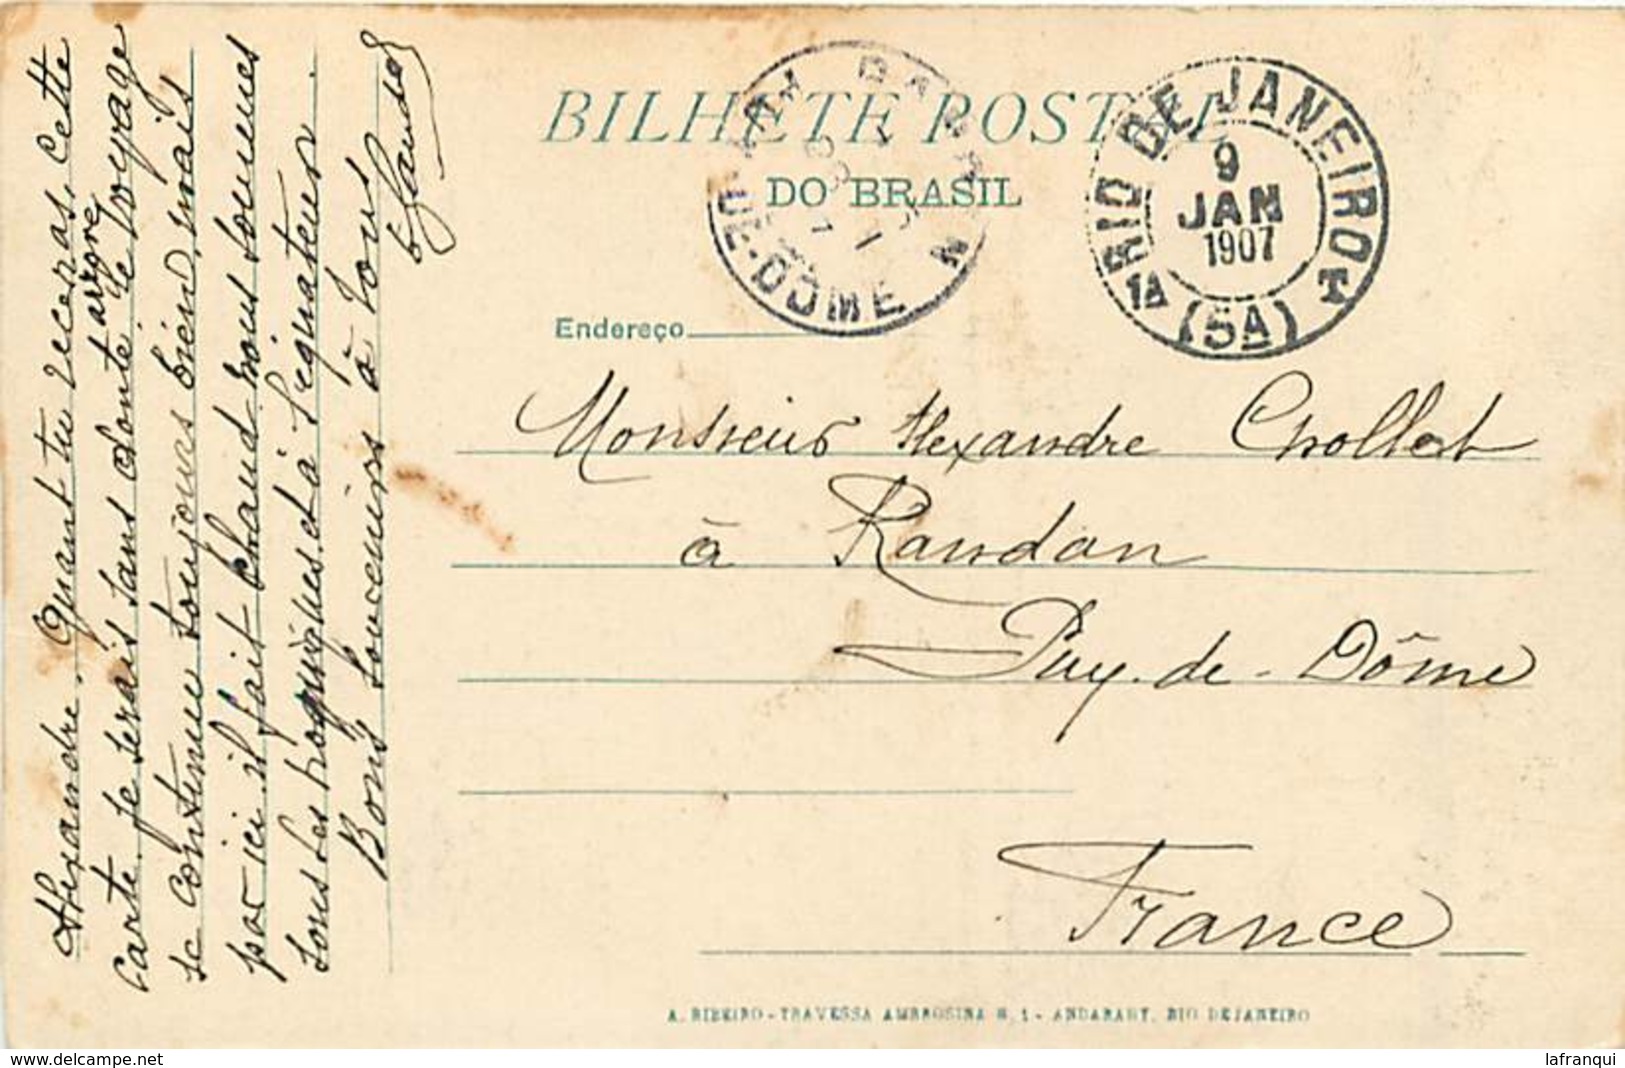 BILHETE POSTAL
DO BRASIL
RIO DE JANEIRO
9
JAN
1907
1A (5A) T
RANDAN
PUY-DE-DÔME
Endereço
Monsieur Alexandre Chollet
à Randan
Puy-de-Dôme
France
Alexandre. Quant tu recevras, cette
carte je serais sans doute arrové, le voyage
se continue toujours bien, mais
par ici il fait chaud nous sommes
sous les tropiques, et à l'equateur.
Bons souvenirs à tous
A. RIBEIRO - TRAVESSA AMBROSINA N. 1 - ANDARAHY, RIO DE JANEIRO
delcampe.net
lafranqui